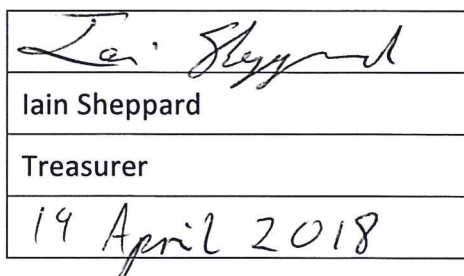 Iain Sheppard
Iain Sheppard
Treasurer
19 April 2018